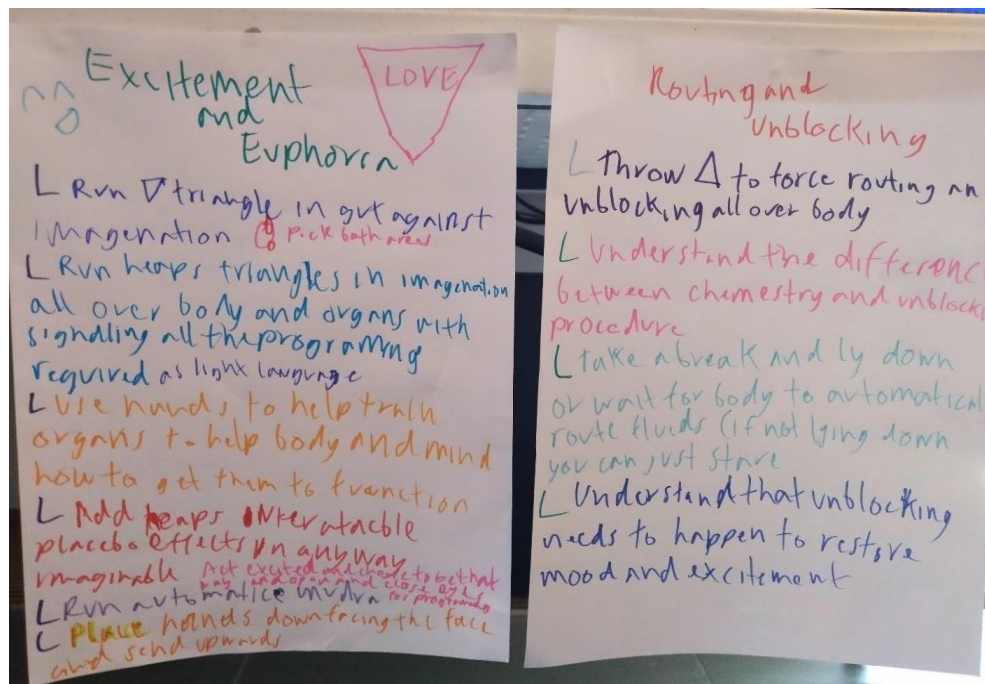 Excitement
and
Euphoria
LOVE
L Run ▽ triangle in gut against
imagenation pick both areas
L Run heaps triangles in imagenation
all over body and organs with
signalling all the programing
required as light language
L Use hands to help train
organs to help body and mind
how to get them to function
L Add heaps
placebo effects in any way
imaginable Act excited and choose to be that
way and open and close eyes
L Run automatice mudra for programing
L Place hands down facing the face
and send upwards
Routing and
Unblocking
L Throw △ to force routing an
unblocking all over body
L Understand the differenc
between chemestry and unblock
procedure
L take a break and ly down
or wait for body to automatical
route fluids (if not lying down
you can just stare
L Understand that unblocking
needs to happen to restore
mood and excitement